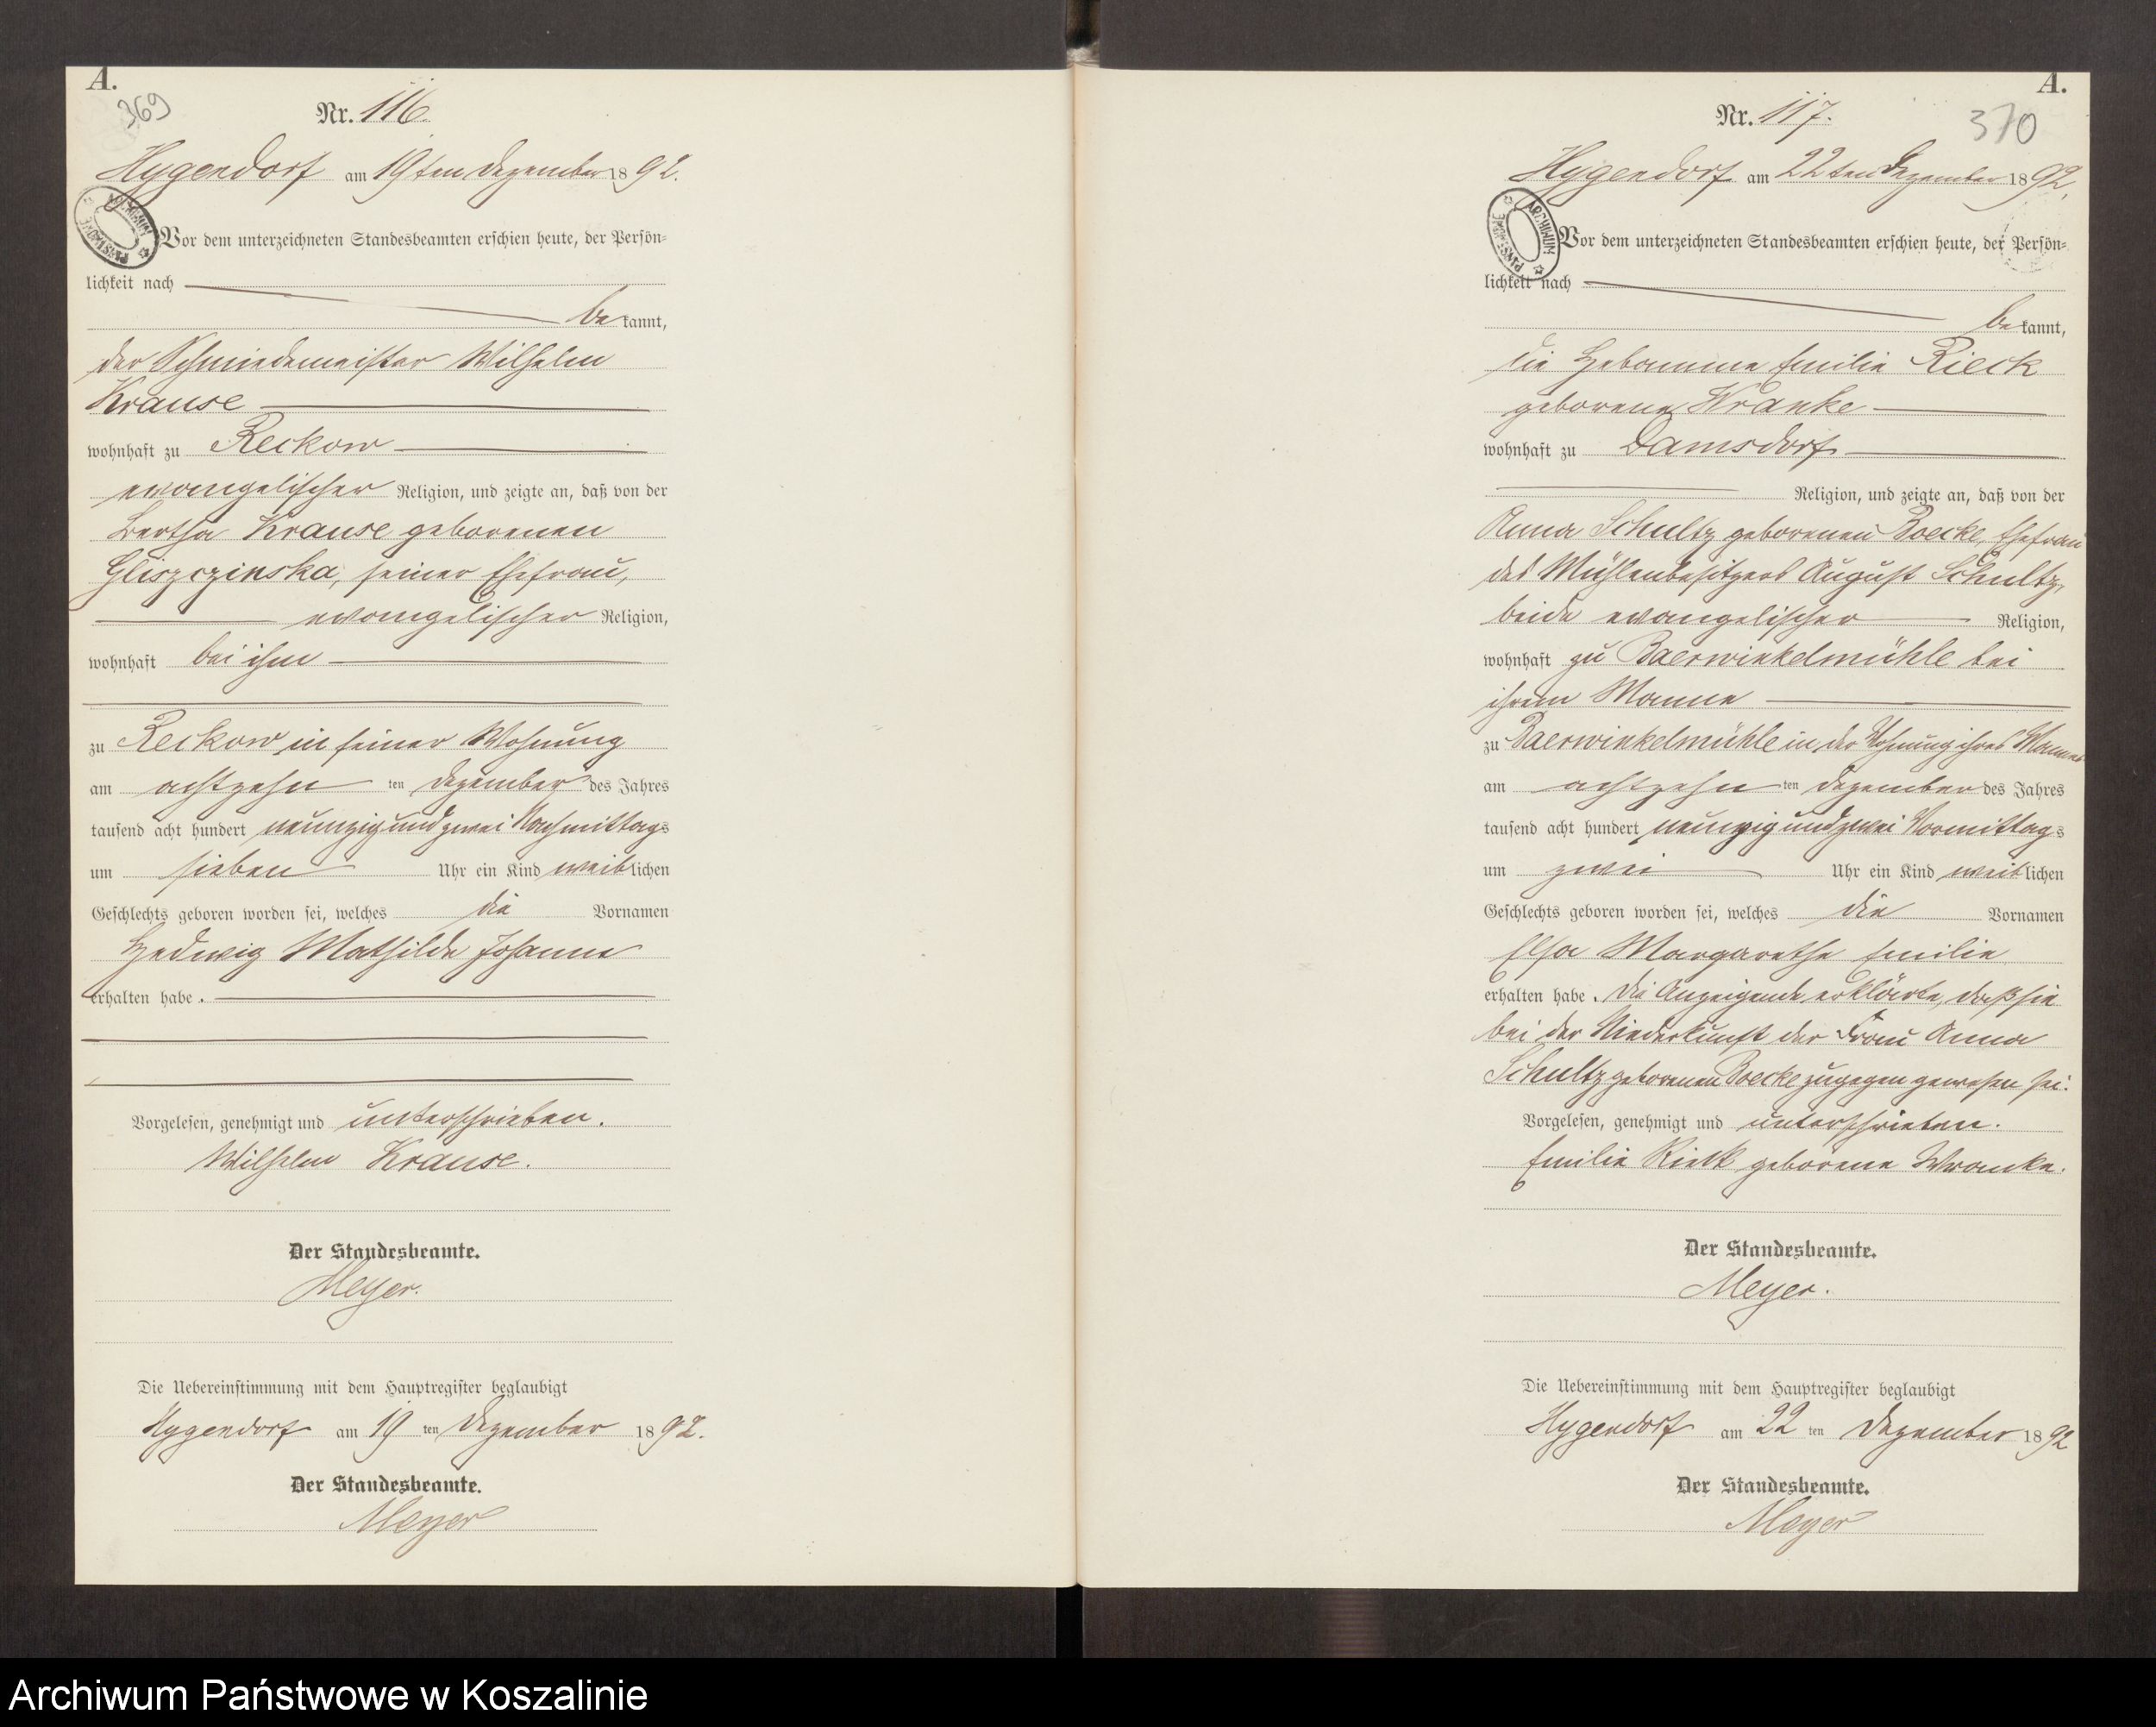 A.
369
Nr. 116.
Hygendorf am 19ten Dezember 1892.
ARCHIWUM PAŃSTWOWE
Vor dem unterzeichneten Standesbeamten erschien heute, der Persön=
lichkeit nach
be kannt,
der Schmiedemeister Wilhelm
Krause
wohnhaft zu Reckow
evangelischer Religion, und zeigte an, daß von der
Bertha Krause geborenen
Gliszczinska, seiner Ehefrau,
evangelischer Religion,
wohnhaft bei ihm
zu Reckow in seiner Wohnung
am achtzehn ten Dezember des Jahres
tausend acht hundert neunzig und zwei Nachmittags
um sieben Uhr ein Kind weiblichen
Geschlechts geboren worden sei, welches die Vornamen
Hedwig Mathilde Johanne
erhalten habe.
Vorgelesen, genehmigt und unterschrieben.
Wilhelm Krause.
Der Standesbeamte.
Meyer.
Die Uebereinstimmung mit dem Hauptregister beglaubigt
Hygendorf am 19 ten Dezember 1892.
Der Standesbeamte.
Meyer
A.
370
Nr. 117.
Hygendorf am 22ten Dezember 1892.
ARCHIWUM PAŃSTWOWE
Vor dem unterzeichneten Standesbeamten erschien heute, der Persön=
lichkeit nach
be kannt,
die Hebamme Emilie Rieck
geborene Wranke
wohnhaft zu Damsdorf
Religion, und zeigte an, daß von der
Anna Schultz geborenen Boecke, Ehefrau
des Mühlenbesitzers August Schultz,
beide evangelischer Religion,
wohnhaft zu Baerwinkelmühle bei
ihrem Manne
zu Baerwinkelmühle in der Wohnung ihres Mannes
am achtzehn ten Dezember des Jahres
tausend acht hundert neunzig und zwei Vormittags
um zwei Uhr ein Kind weiblichen
Geschlechts geboren worden sei, welches die Vornamen
Elsa Margarethe Emilie
erhalten habe. Die Anzeigende erklärte, daß sie
bei der Niederkunft der Frau Anna
Schultz geborenen Boecke zugegen gewesen sei.
Vorgelesen, genehmigt und unterschrieben.
Emilie Rieck geborene Wranke.
Der Standesbeamte.
Meyer.
Die Uebereinstimmung mit dem Hauptregister beglaubigt
Hygendorf am 22 ten Dezember 1892
Der Standesbeamte.
Meyer
Archiwum Państwowe w Koszalinie